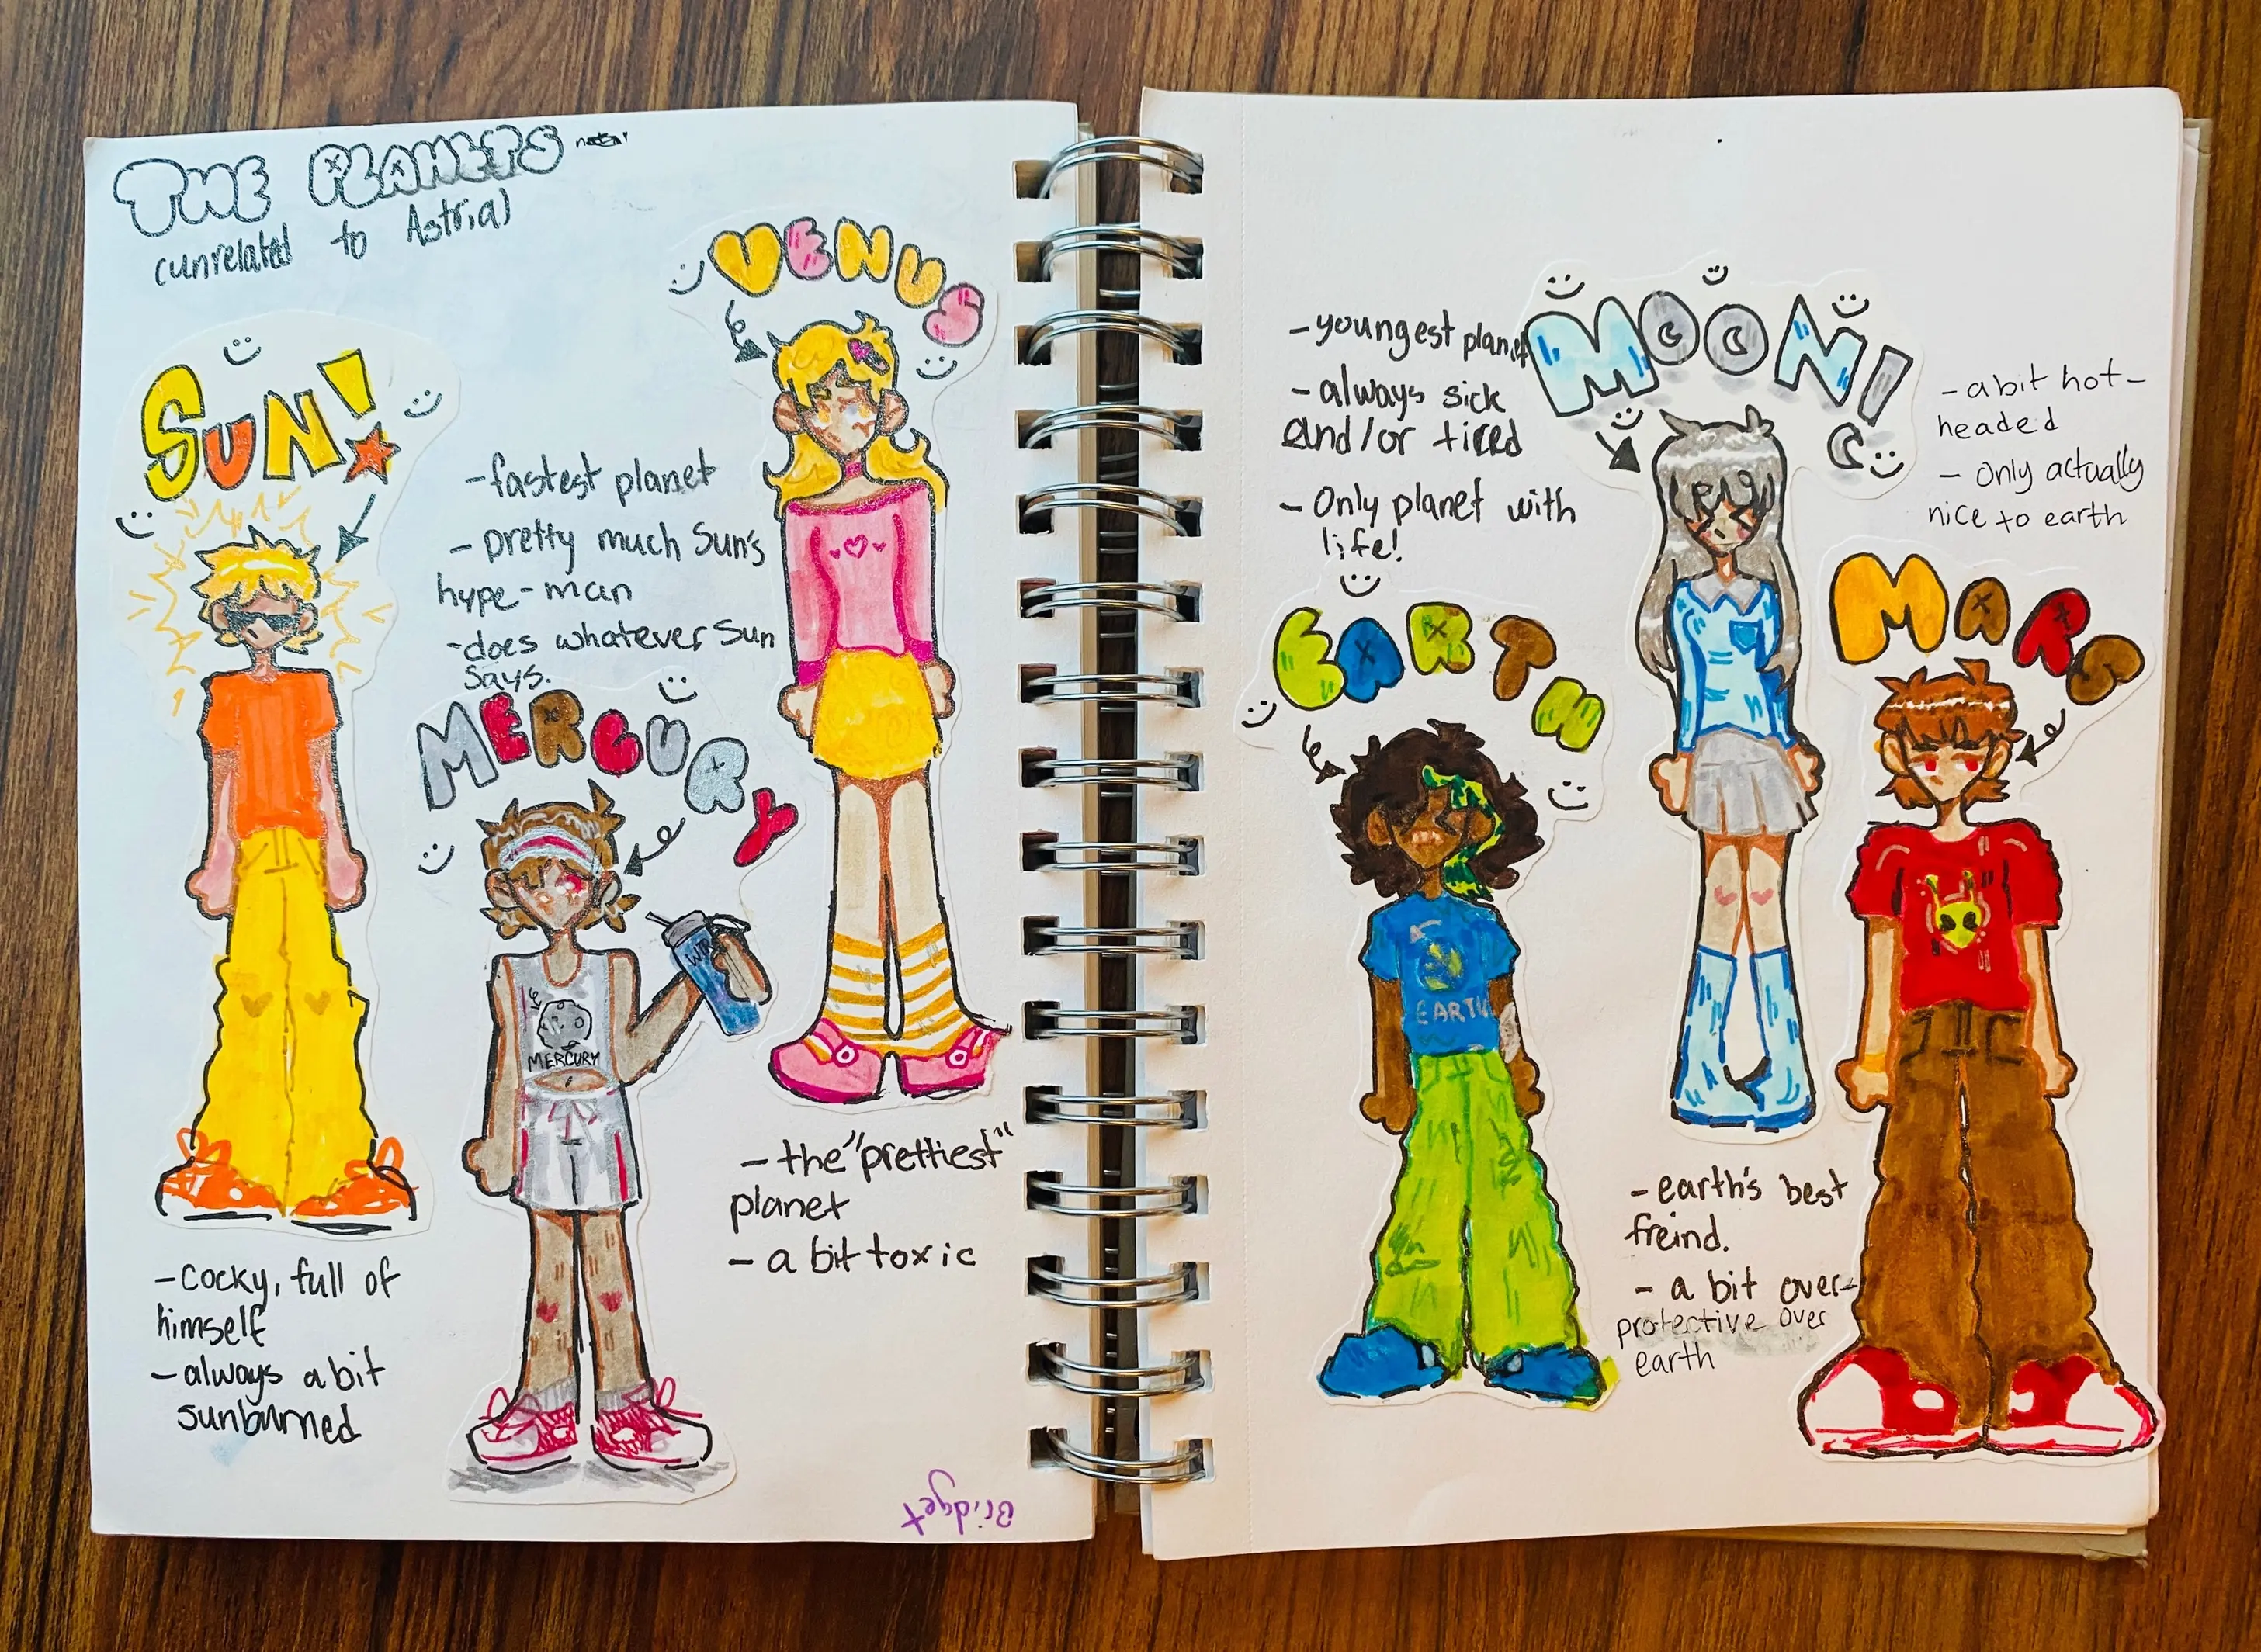 THE PLANETS
(unrelated to Astrial
SUN!
- cocky, full of
himself
- always a bit
sunburned
- fastest planet
- pretty much Sun's
hype-man
- does whatever Sun
says.
MERCURY
MERCURY
VENUS
- the "prettiest"
planet
- a bit toxic
Bridget
- youngest planet
- always sick
and/or tired
- Only planet with
life!
EARTH
EARTH
MOON!
- earth's best
freind.
- a bit over-
protective over
earth
- a bit hot-
headed
- Only actually
nice to earth
MARS